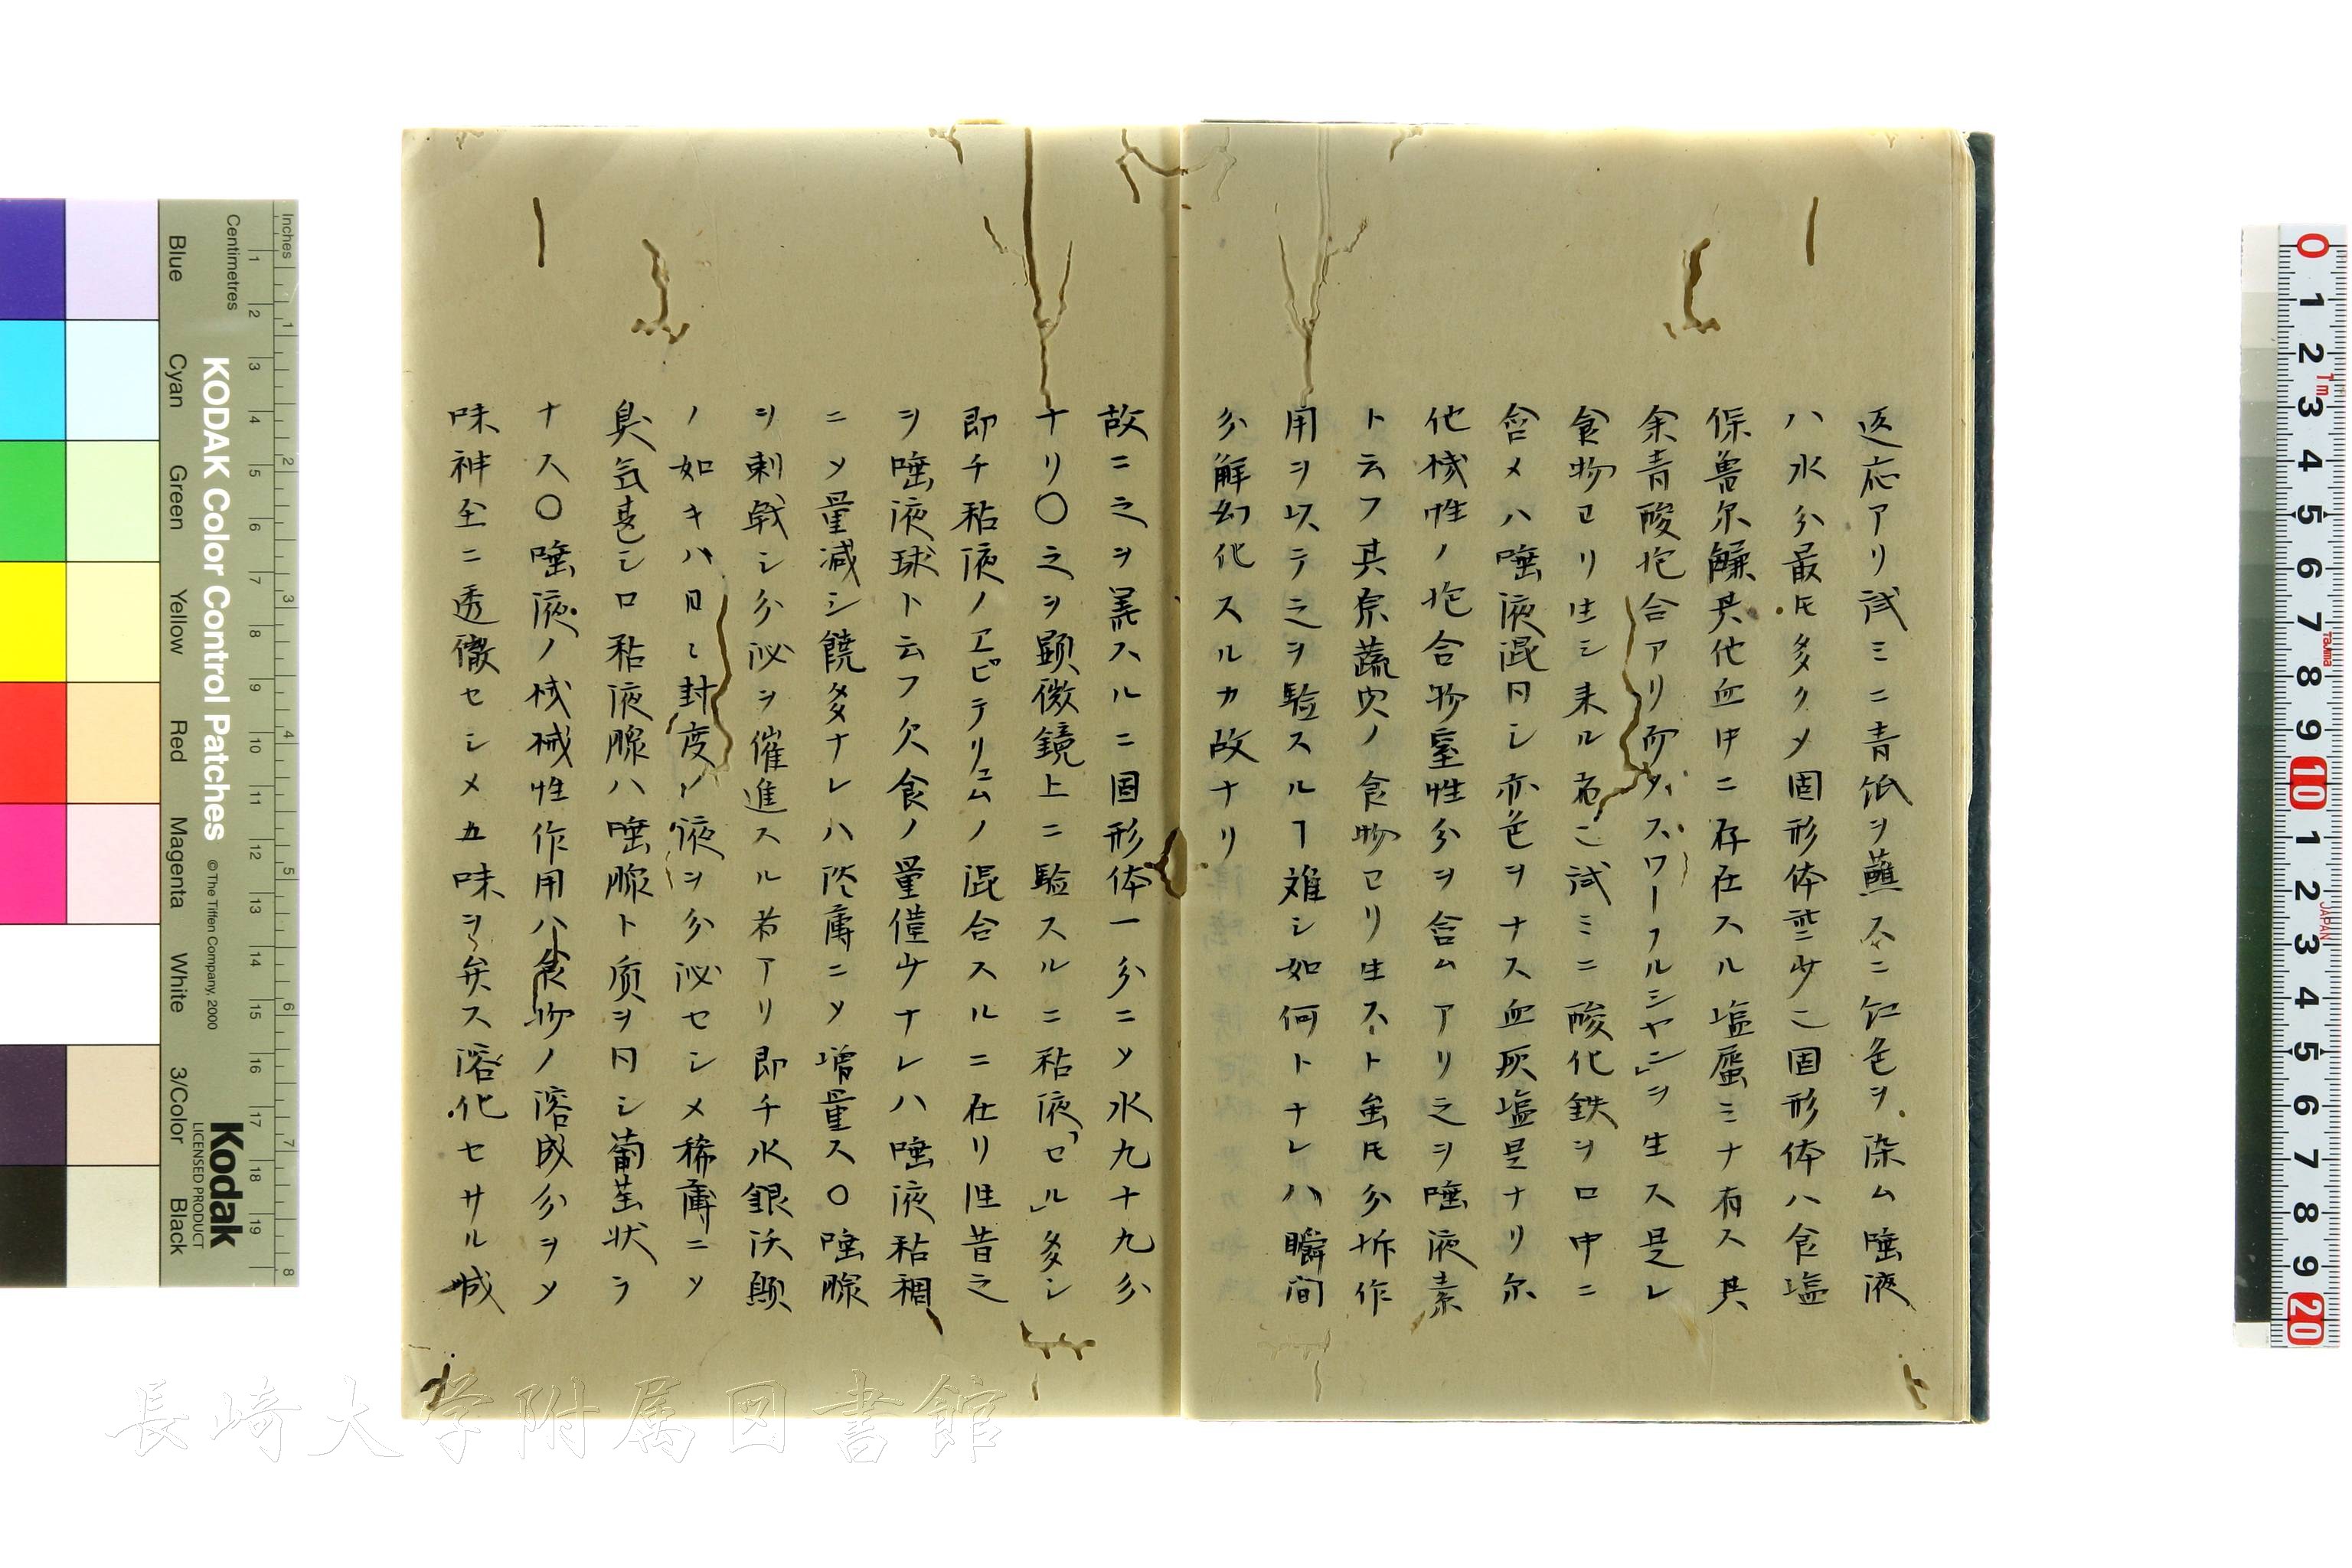 返応アリ試ミニ青紙ヲ蘸スニ紅色ヲ染ム唾液
ハ水分最モ多クメ固形体些少ニ固形体ハ食塩
保魯尔其他血中ニ存在スル塩属ミナ有ス其
余青酸抱合アリ而メスワーフルシヤン」ヲ生ス是レ
食物ヨリ生シ来ル者ニ試ミニ酸化鉄ヲ口中ニ
含メハ唾液混同シ赤色ヲナス血灰塩是ナリ尔
他機性ノ抱合物窒性分ヲ含ムアリ之ヲ唾液素
ト云フ其原蔬肉ノ食物ヨリ生スト虽モ分拆作
用ヲ以テ之ヲ験スルヿ难シ如何トナレハ瞬间
分解幻化スルカ故ナリ
故ニ之ヲ累スルニ固形体一分ニメ水九十九分
ナリ〇之ヲ顕微鏡上ニ験スルニ粘液「セル」多シ
即チ粘液ノエピテリュムノ混合スルニ在リ往昔之
ヲ唾液球ト云フ欠食ノ量僅少ナレハ唾液粘稠
ニメ量減シ饒多ナレハ稀薄ニメ増量ス〇唾腺
ヲ刺戟シ分泌ヲ催進スル者アリ即チ水銀沃顕
ノ如キハ日々封度ノ液ヲ分泌セシメ稀薄ニメ
臭気甚シ口粘液腺ハ唾腺ト质ヲ同シ葡萄状ヲ
ナス〇唾液ノ機械性作用ハ食物ノ溶成分ヲメ
味神至ニ透徹セシメ五味ヲ弁ス溶化セサル堿
Inches
Centimetres
KODAK Color Control Patches
© The Tiffen Company, 2000
Kodak
LICENSED PRODUCT
Blue Cyan Green Yellow Red Magenta White 3/Color Black
長崎大学附属図書館